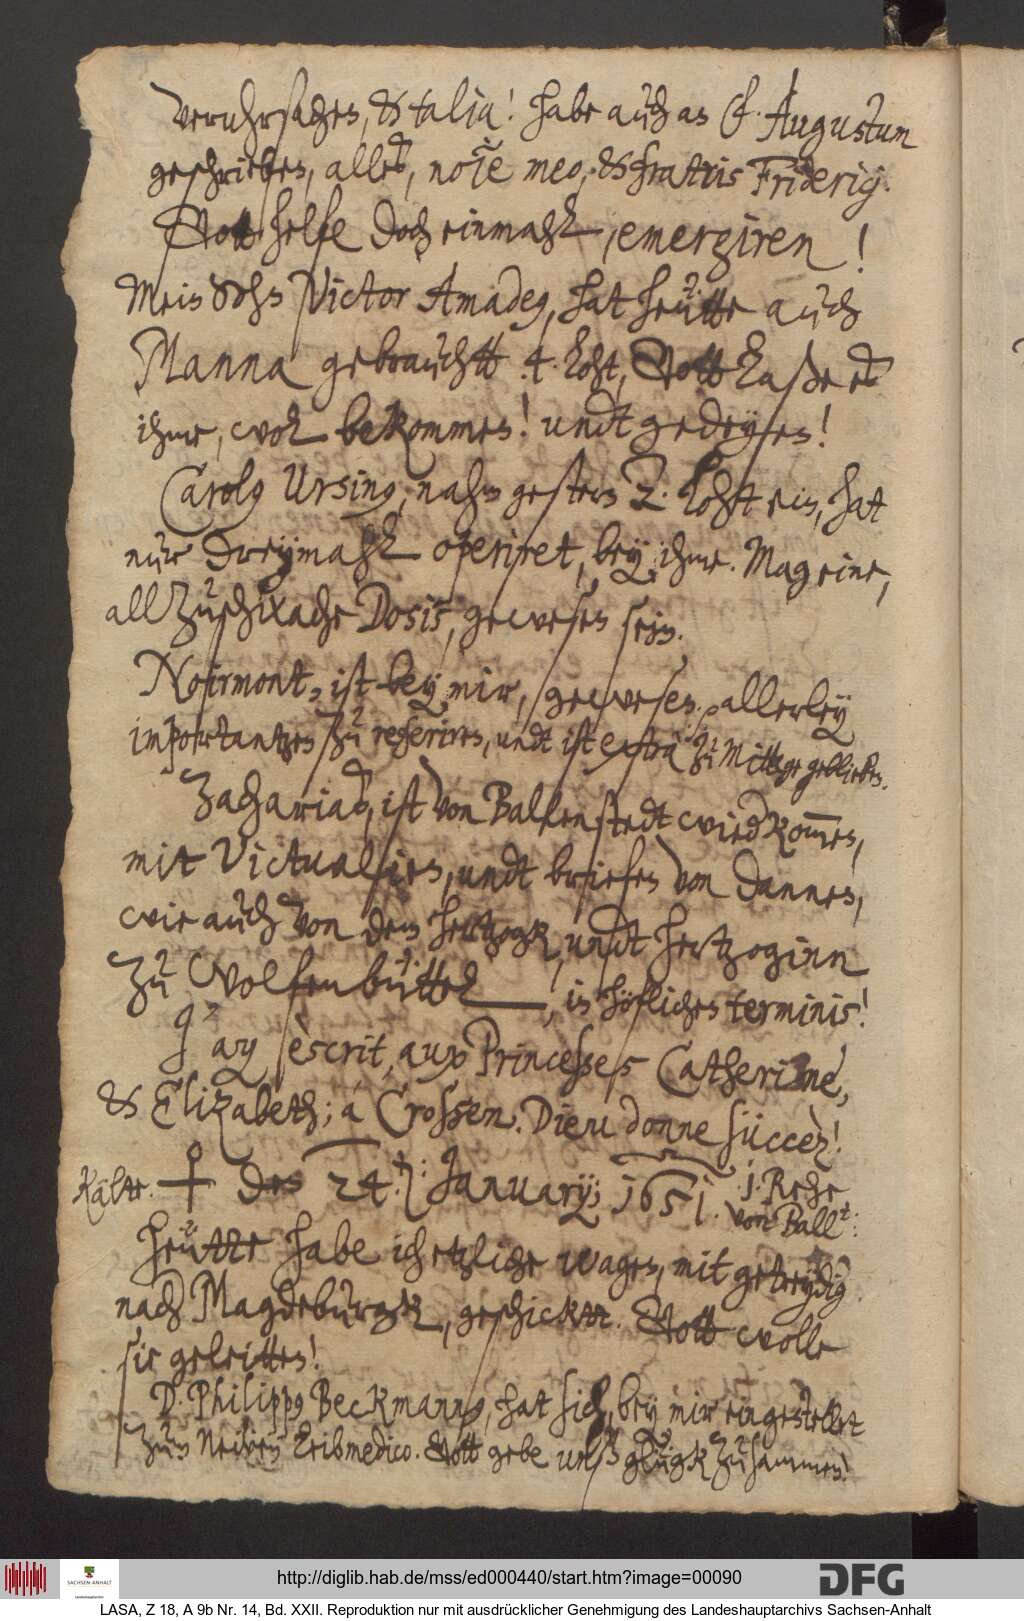 veruhrsachen, & talia! habe auch an F. Augustum
geschrieben, alles, noı̃e meo, & fratris Friderici.
Gott helfe doch einmahl, emergiren!
Mein Sohn Victor Amadeus, hat heütte auch
Manna gebrauchtt 4. loht, Gott laße es
ihme, wol bekommen! undt gedeyen!
Carolus Ursinus, nahm gestern 2. loht ein, hat
nur dreymahl operiret, bey ihme. Mag eine,
allzuschwache Dosis, gewesen sein.
Noirmont, ist bey mir, gewesen. allerley
importantzen zu referiren, undt ist extra zu Mittage geblieben.
Zacharias, ist von Ballenstedt wiederkommen,
mit Victualien, undt briefen von dannen,
wie auch von dem hertzogk, undt hertzoginn
zu Wolfenbüttel, in höflichen terminis!
J'ay èscrit, aux Princesses Catherine,
& Elizabeth; á Crossen. Dieu donne succèz!
Kälte. ☿ den 24. Januarij; 1651. j. Rehe
von Ball:
Heütte habe ich etzliche wagen, mit getreydig
nach Magdeburgk, geschickt. Gott wolle
sie geleitten!
D. Philippus Beckmannus, hat sich, bey mir eingestellet
zum Neiwen Leibmedico. Gott gebe unß glügk zusammen!
http://diglib.hab.de/mss/ed000440/start.htm?image=00090
SACHSEN-ANHALT
DFG
LASA, Z 18, A 9b Nr. 14, Bd. XXII. Reproduktion nur mit ausdrücklicher Genehmigung des Landeshauptarchivs Sachsen-Anhalt